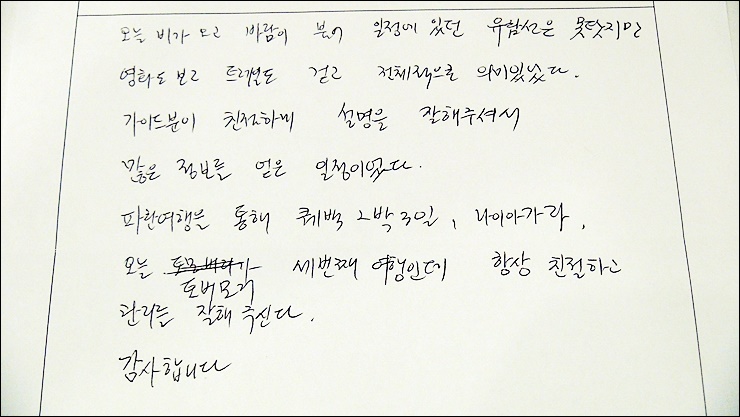 오늘 비가 오고 바람이 불어 일정에 있던 유람선은 못탓지만
영화도 보고 트레일도 걷고 전체적으로 의미있었다.
가이드분이 친절하며 설명을 잘해주셔서
많은 정보를 얻은 일정이었다.
파란여행을 통해 퀘백 2박3일, 나이아가라,
오늘 토버모리가 세번째 여행인데 항상 친절하고
관리를 잘해 주신다.
감사합니다